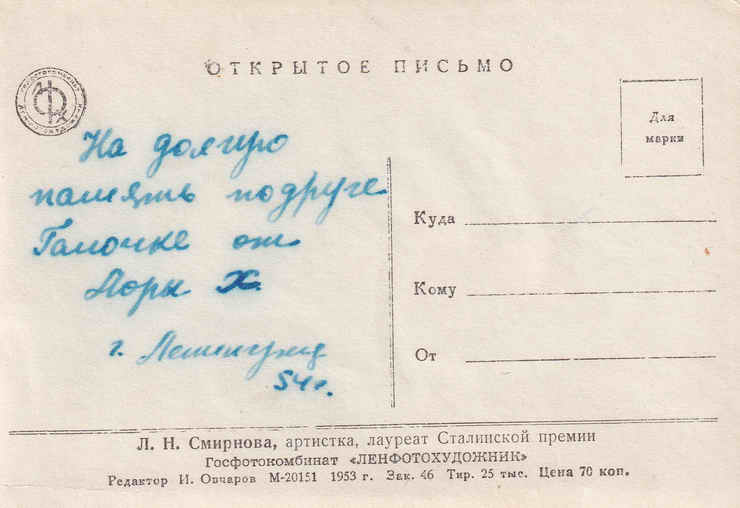 ОТКРЫТОЕ ПИСЬМО
Для
марки
На долгую
память подруге
Галочке от
Лоры Х.
г. Ленинград
54 г.
Куда
Кому
От
Л. Н. Смирнова, артистка, лауреат Сталинской премии
Госфотокомбинат «ЛЕНФОТОХУДОЖНИК»
Редактор И. Овчаров М-20151 1953 г. Зак. 46 Тир. 25 тыс. Цена 70 коп.